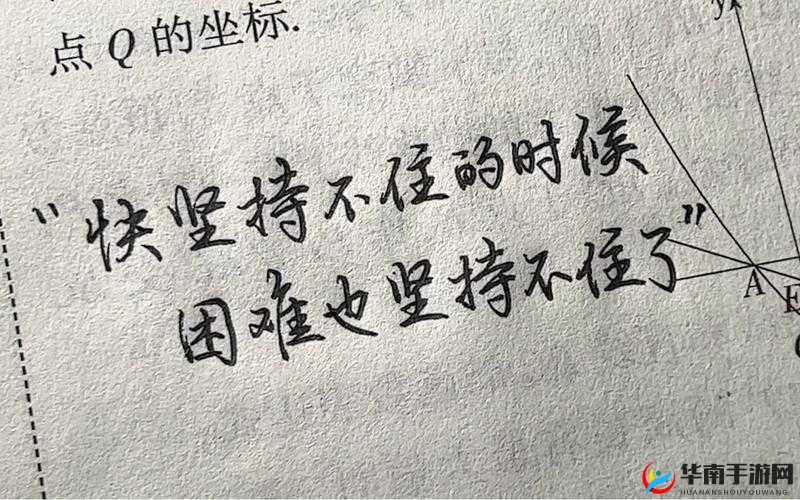 点 Q 的坐标.
y
“快坚持不住的时候
困难也坚持不住了”
A
E
华南手游网
HUANANSHOUYOUWANG